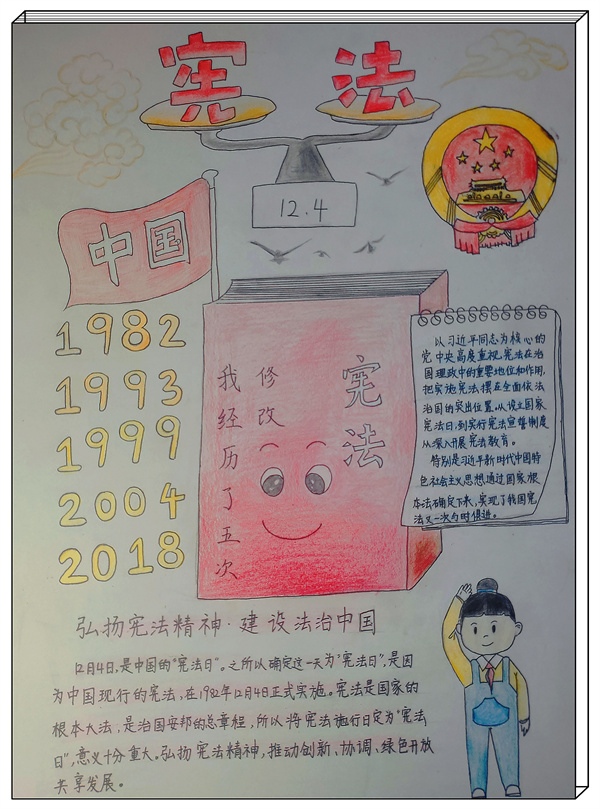 宪法
12.4
中国
1982
1993
1999
2004
2018
宪法
修改
我经历了五次
以习近平同志为核心的
党中央高度重视宪法在治
国理政中的重要地位和作用,
把实施宪法摆在全面依法
治国的突出位置。从设立国家
宪法日,到实行宪法宣誓制度
从深入开展宪法教育。
特别是习近平新时代中国特
色社会主义思想通过国家根
本法确定下来,实现了我国宪
法又一次与时俱进。
弘扬宪法精神·建设法治中国
12月4日,是中国的"宪法日"。之所以确定这一天为"宪法日",是因
为中国现行的宪法,在1982年12月4日正式实施。宪法是国家的
根本大法,是治国安邦的总章程,所以将宪法施行日定为"宪法
日",意义十分重大。弘扬宪法精神,推动创新、协调、绿色开放
共享发展。